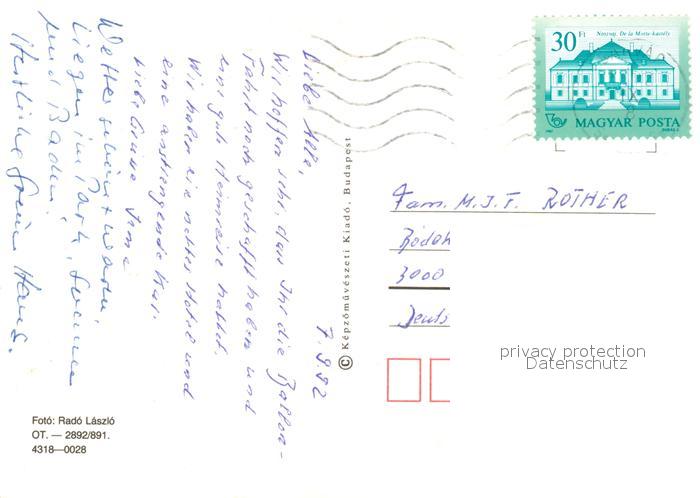 7.9.92
Liebe Alle,
Wir hoffen sehr, das Ihr die Ballon-
Fahrt noch geschafft haben und
eine gute Heimreise hattet.
Wir haben ein nettes Hotel und
eine anstrengende Kur.
Liebe Grüsse Irmi
Wetter schön + warm,
Liegen im Park, Sonne
und Baden!
Herzliche Grüße Hans.
© Képzőművészeti Kiadó, Budapest
30 Ft
Noszvaj, De la Motte-kastély
MAGYAR POSTA
Fam. M. J. T. ROTHER
3000
Deuts
privacy protection
Datenschutz
Fotó: Radó László
OT. — 2892/891.
4318—0028